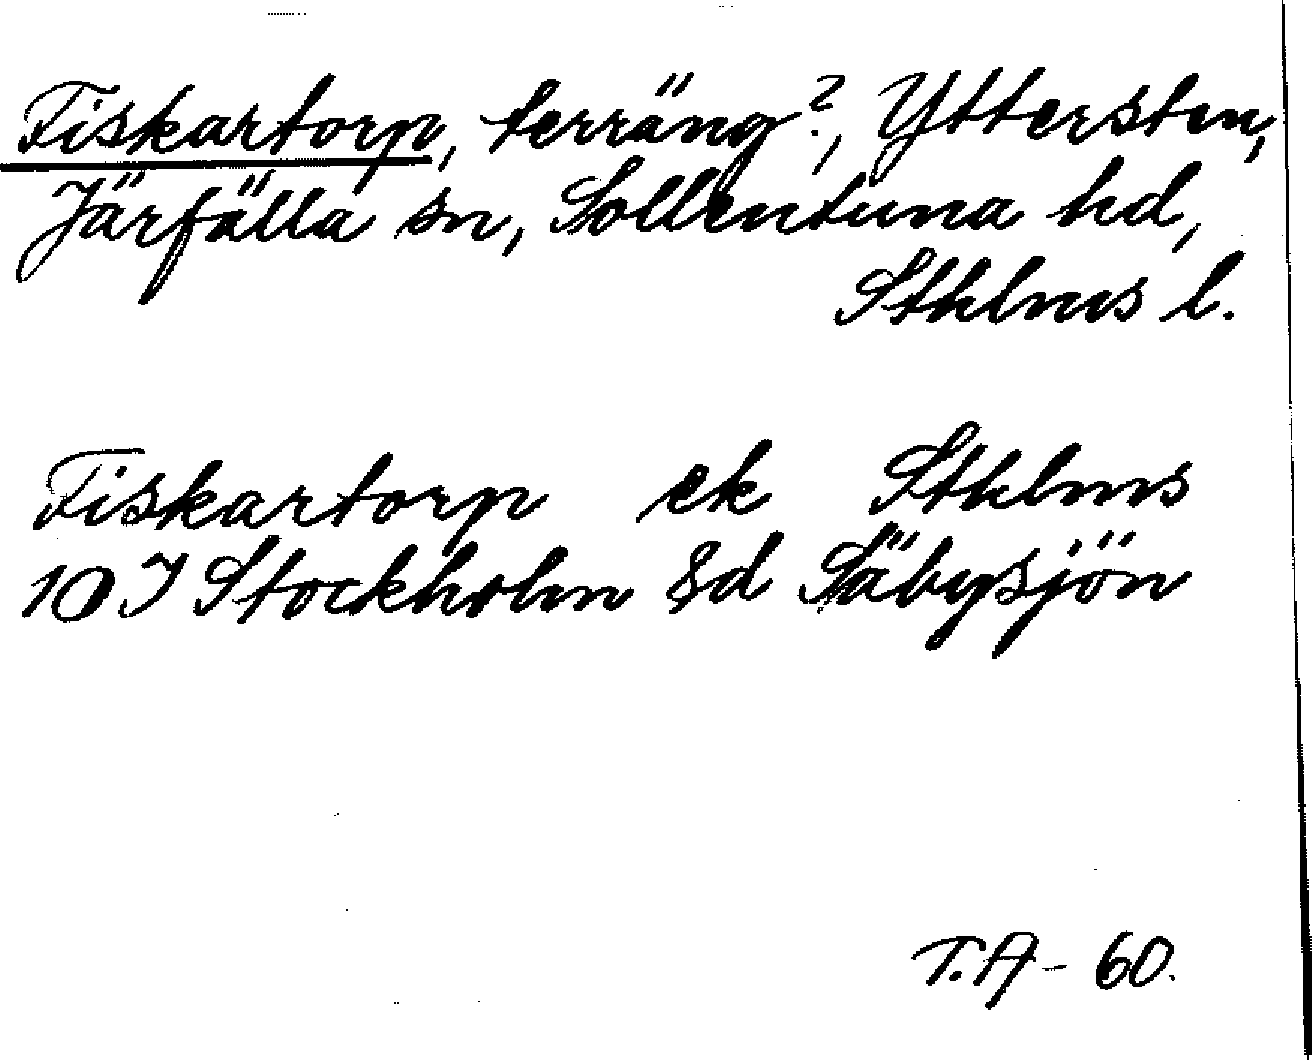 Fiskartorp, terräng?, Yttersten,
Järfälla sn, Sollentuna hd,
Sthlms l.
Fiskartorp ek Sthlms
10 I Stockholm Sd Säbysjön
T.A - 60.